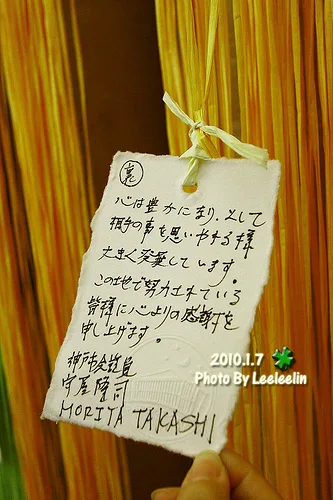 裏
心は豊かになり、そして
相手の事を思いやる様
大きく発展しています。
この地で努力されている
皆様に心よりの感謝を
申し上げます。
神戸市会議員
守屋隆司
MORITA TAKASHI
2010.1.7
Photo By Leeleelin